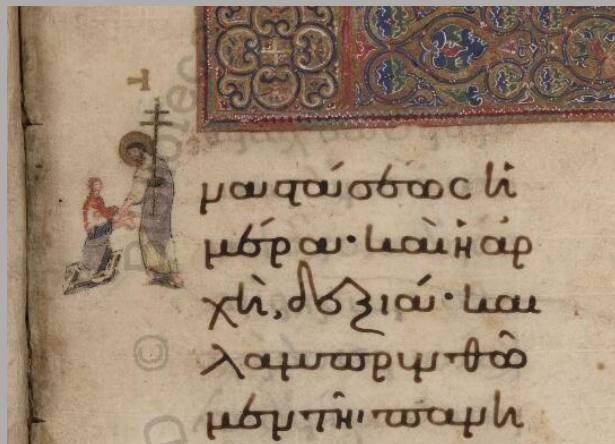 ναστάσεως ἡ
μέρα· καὶ ἡ ἀρ
χὴ, δεξιά· και
λαμπρυνθῶ
μεν τῇ πανη